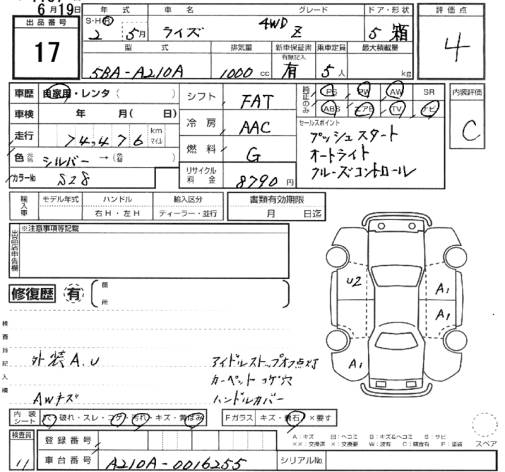 6月19日
出品番号 17
年式 S・H・R 2年 5月 車名 ライズ グレード 4WD Z ドア・形状 5 箱
型式 5BA-A210A 排気量 1000cc 新車保証書 有無記入 有 乗車定員 5人 最大積載量 kg
評価点 4
車歴 自家用・レンタ( ) シフト FAT 純正のみ PS PW AW SR
ABS エアB TV ナビ
内装評価 C
車検 年 月( 日) 冷房 AAC セールスポイント
走行 74,476 km マイル プッシュスタート
燃料 G オートライト
色 シルバー → ( ) クルーズコントロール
カラーNo S28 リサイクル料金 8790円
輸入車 モデル年式 ハンドル 右H・左H 輸入区分 ディーラー・並行 書類有効期限 月 日迄
出品店申告欄 ※注意事項等記載
修復歴 有 箇所
検査員記入欄
U2 A1 A1 A1
外装A.U アイドルストップオフ点灯
カーペットコゲ穴
AWキズ ハンドルカバー
内装シート 穴・破れ・スレ・コゲ・汚れ・キズ・黄ばみ Fガラス キズ・飛石・×要す
検査員 11 登録番号
A:キズ U:ヘコミ B:キズ&ヘコミ S:サビ
スペア
車台番号 A210A-0016255 シリアルNo.